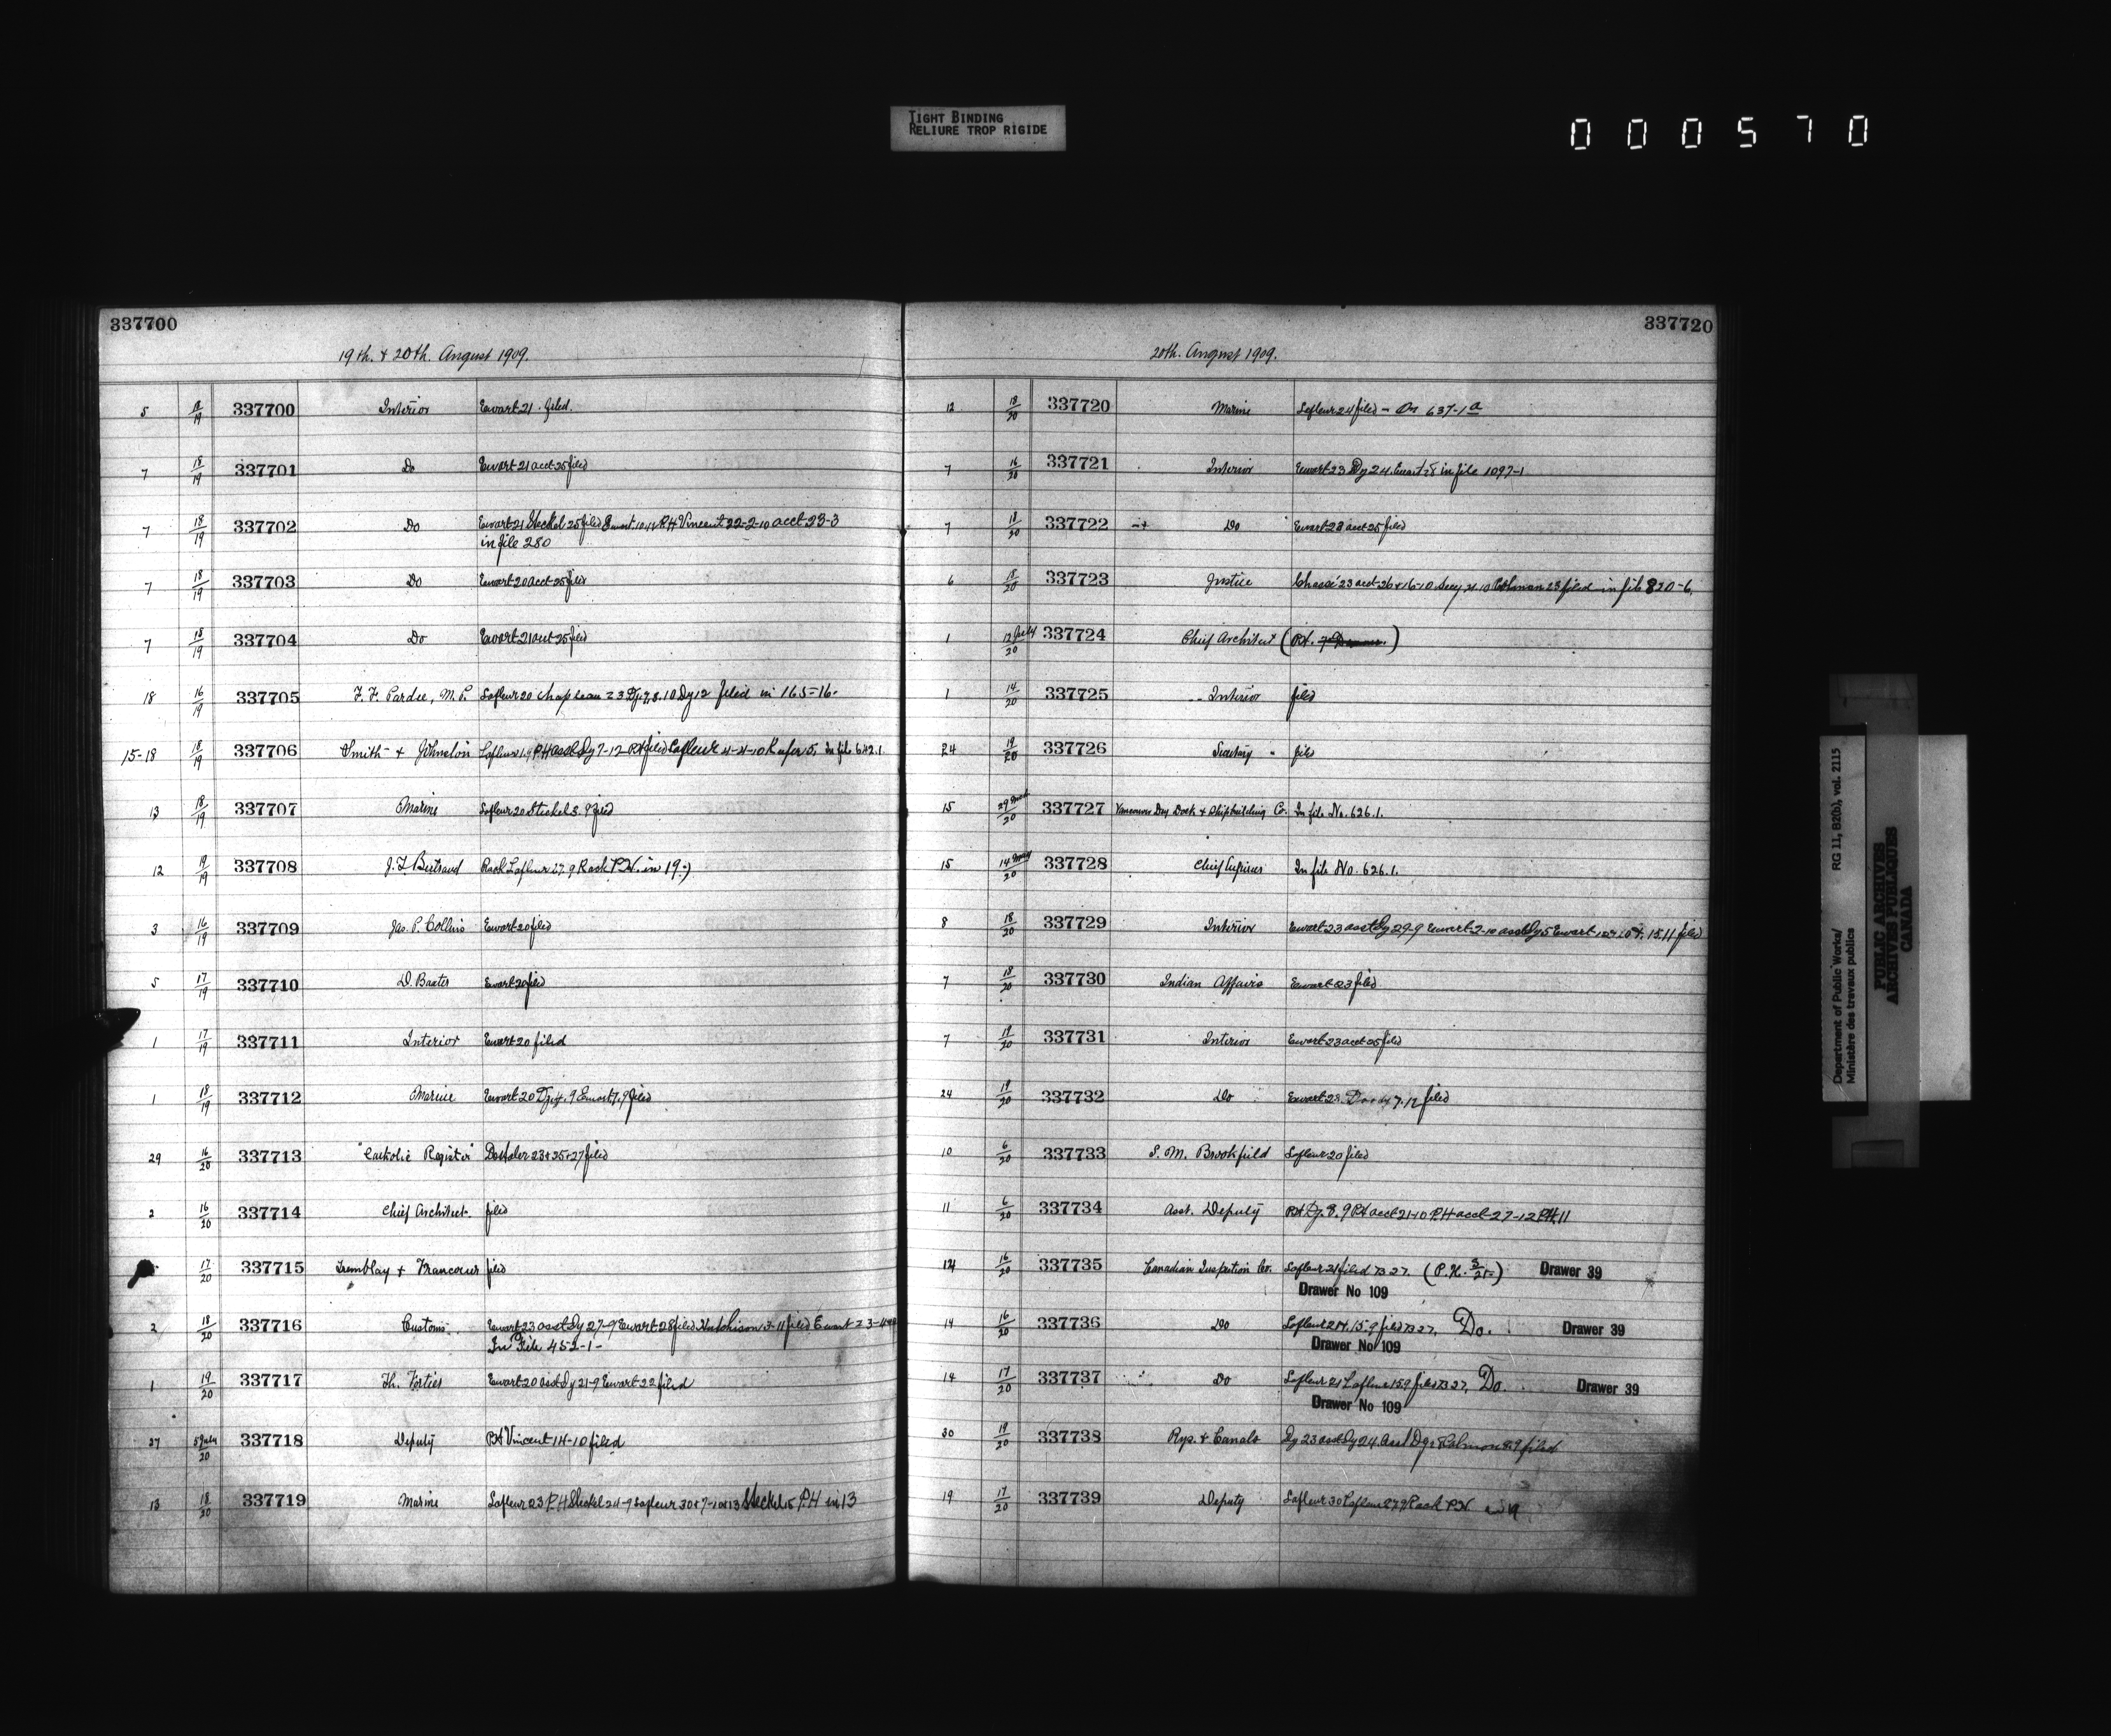 TIGHT BINDING
RELIURE TROP RIGIDE
000570
337700
19th. & 20th. August 1909.
5 19 337700 Interior Ewart 21 filed.
7 18/19 337701 Do Ewart 21 acct 25 filed
7 18/19 337702 Do Ewart 21 Steckel 25 filed Ewart P.H Vincent 22-2-10 acct 23-3
in file 280
7 18/19 337703 Do Ewart 20 acct 25 filed
7 18/19 337704 Do Ewart 21 acct 25 filed
18 16/19 337705 F. F. Pardee, M.P. Lafleur 20 Chapleau 23 Dy 12 filed in 165-16.
15-18 18/19 337706 Smith & Johnston Lafleur P.H asst Dy 7-12 P.H filed Lafleur 4-4-10 in file 642.1
13 18/19 337707 Marine Lafleur 20 Steckel 3.9 filed
12 19/19 337708 J. L. Bertrand Rack Lafleur 27.9 Rack P.N. in 19.)
3 16/19 337709 Jas. P. Collins Ewart 20 filed
5 17/19 337710 D. Baxter Ewart 20 filed
1 17/19 337711 Interior Ewart 20 filed
1 18/19 337712 Marine Ewart 20 Dy 4.9 Ewart 7.9 filed
29 16/20 337713 "Catholic Register" 23+25+27 filed
2 16/20 337714 Chief Architect. filed
17/20 337715 Tremblay & Francoeur filed
2 18/20 337716 Customs. Ewart 23 asst Dy 27-9 Ewart 28 filed Hutchison 13-11 filed Ewart 23-4
In File 452-1-
1 19/20 337717 Th. Ewart 20 asst Dy 21-9 Ewart 22 filed
27 5 July/20 337718 Deputy P.H Vincent 14-10 filed
13 18/20 337719 Marine Lafleur 23 P.H Steckel 24-9 Lafleur 30+7-10+13 Steckel 15 P.H in 13
337720
20th. August 1909.
12 18/20 337720 Marine Lafleur 24 filed - On 637-1a
7 16/20 337721 Interior Ewart 23 Dy 24. Ewart 28 in file 1097-1
7 18/20 337722 Do Ewart 23 acct 25 filed
6 18/20 337723 Justice Chassé 23 acct 26 + 16-10. filed in file 820-6.
1 12 July/20 337724 Chief Architect (P.H.)
1 14/20 337725 Interior filed
24 19/20 337726 Secretary filed
15 29 /20 337727 Vancouver Dry Dock & Shipbuilding Co. In file No. 626.1.
15 14 May/20 337728 Chief Engineer In file No. 626.1.
8 18/20 337729 Interior Ewart 23 asst Dy 29-9 Ewart 2-10 asst Dy 5 Ewart 15.11 filed
7 18/20 337730 Indian Affairs Ewart 23 filed
7 19/20 337731 Interior Ewart 23 acct 25 filed
24 19/20 337732 Do Ewart 23. 7.12 filed
10 6/20 337733 S. M. Brookfield Lafleur 20 filed
11 6/20 337734 Asst. Deputy P.H Dy. 8.9 P.H acct 21-10 P.H acct 27-12 P.H. 11
14 16/20 337735 Canadian Inspection Co. Lafleur 21 filed B 27. (P.H. 3/25) Drawer 39
Drawer No 109
14 16/20 337736 Do Lafleur 24. 15.9 filed B 27. Do. Drawer 39
Drawer No 109
14 17/20 337737 Do Lafleur 21 Lafleur 15.9 filed B 27, Do. Drawer 39
Drawer No 109
30 19/20 337738 Rys. & Canals Dy 23 asst Dy 24 Asst Dy filed
19 17/20 337739 Deputy Lafleur 30 Lafleur 27.9 Rack P.N in 19
Department of Public Works/ RG 11, B2(b), vol. 2115
Ministère des travaux publics
PUBLIC ARCHIVES
ARCHIVES PUBLIQUES
CANADA